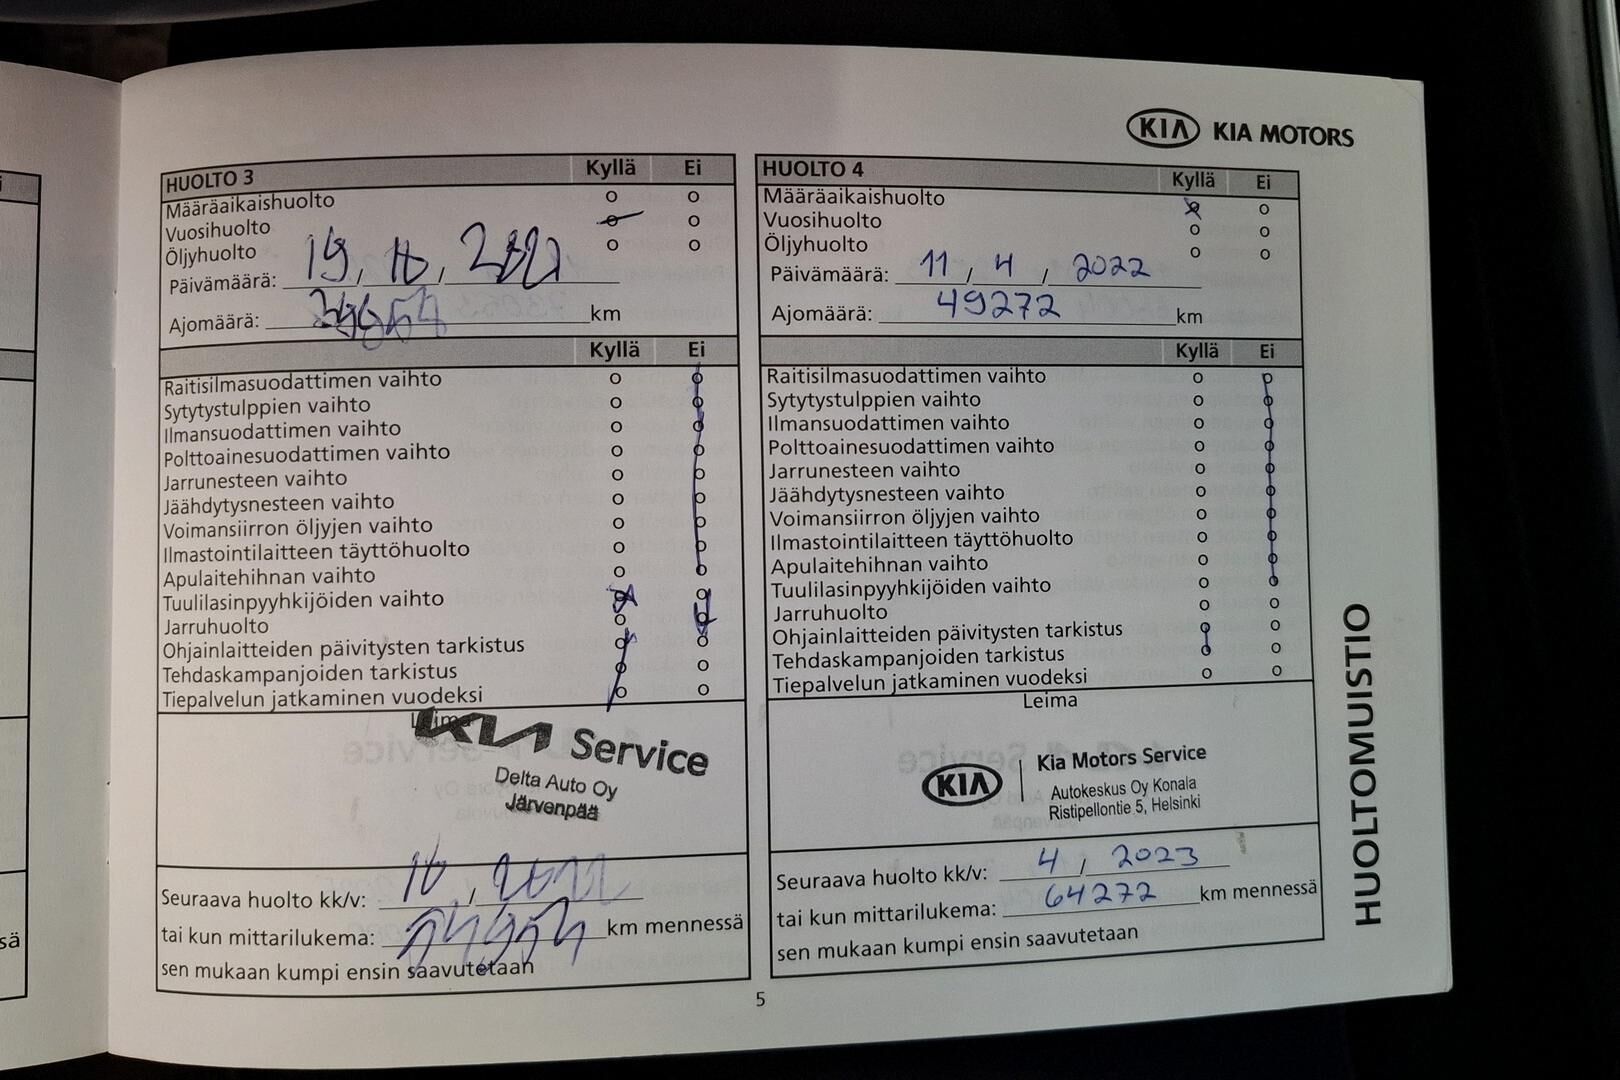 KIA KIA MOTORS
HUOLTO 3 Kyllä Ei
Määräaikaishuolto o o
Vuosihuolto o o
Öljyhuolto o o
Päivämäärä: 19, 10, 2021
Ajomäärä: km
Kyllä Ei
Raitisilmasuodattimen vaihto o o
Sytytystulppien vaihto o o
Ilmansuodattimen vaihto o o
Polttoainesuodattimen vaihto o o
Jarrunesteen vaihto o o
Jäähdytysnesteen vaihto o o
Voimansiirron öljyjen vaihto o o
Ilmastointilaitteen täyttöhuolto o o
Apulaitehihnan vaihto o o
Tuulilasinpyyhkijöiden vaihto o o
Jarruhuolto o o
Ohjainlaitteiden päivitysten tarkistus o o
Tehdaskampanjoiden tarkistus o o
Tiepalvelun jatkaminen vuodeksi o o
Leima
KIA Service
Delta Auto Oy
Järvenpää
Seuraava huolto kk/v: 10, 2022
tai kun mittarilukema: km mennessä
sen mukaan kumpi ensin saavutetaan
HUOLTO 4 Kyllä Ei
Määräaikaishuolto x o
Vuosihuolto o o
Öljyhuolto o o
Päivämäärä: 11, 4, 2022
Ajomäärä: 49272 km
Kyllä Ei
Raitisilmasuodattimen vaihto o o
Sytytystulppien vaihto o o
Ilmansuodattimen vaihto o o
Polttoainesuodattimen vaihto o o
Jarrunesteen vaihto o o
Jäähdytysnesteen vaihto o o
Voimansiirron öljyjen vaihto o o
Ilmastointilaitteen täyttöhuolto o o
Apulaitehihnan vaihto o o
Tuulilasinpyyhkijöiden vaihto o o
Jarruhuolto o o
Ohjainlaitteiden päivitysten tarkistus o o
Tehdaskampanjoiden tarkistus o o
Tiepalvelun jatkaminen vuodeksi o o
Leima
KIA Kia Motors Service
Autokeskus Oy Konala
Ristipellontie 5, Helsinki
Seuraava huolto kk/v: 4, 2023
tai kun mittarilukema: 64272 km mennessä
sen mukaan kumpi ensin saavutetaan
HUOLTOMUISTIO
5